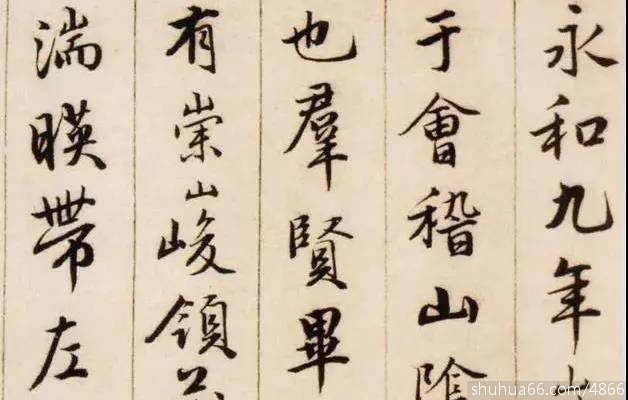 永和九年
于會稽山陰
也羣賢畢
有崇山峻領茂
湍暎帶左
shuhua66.com/4866